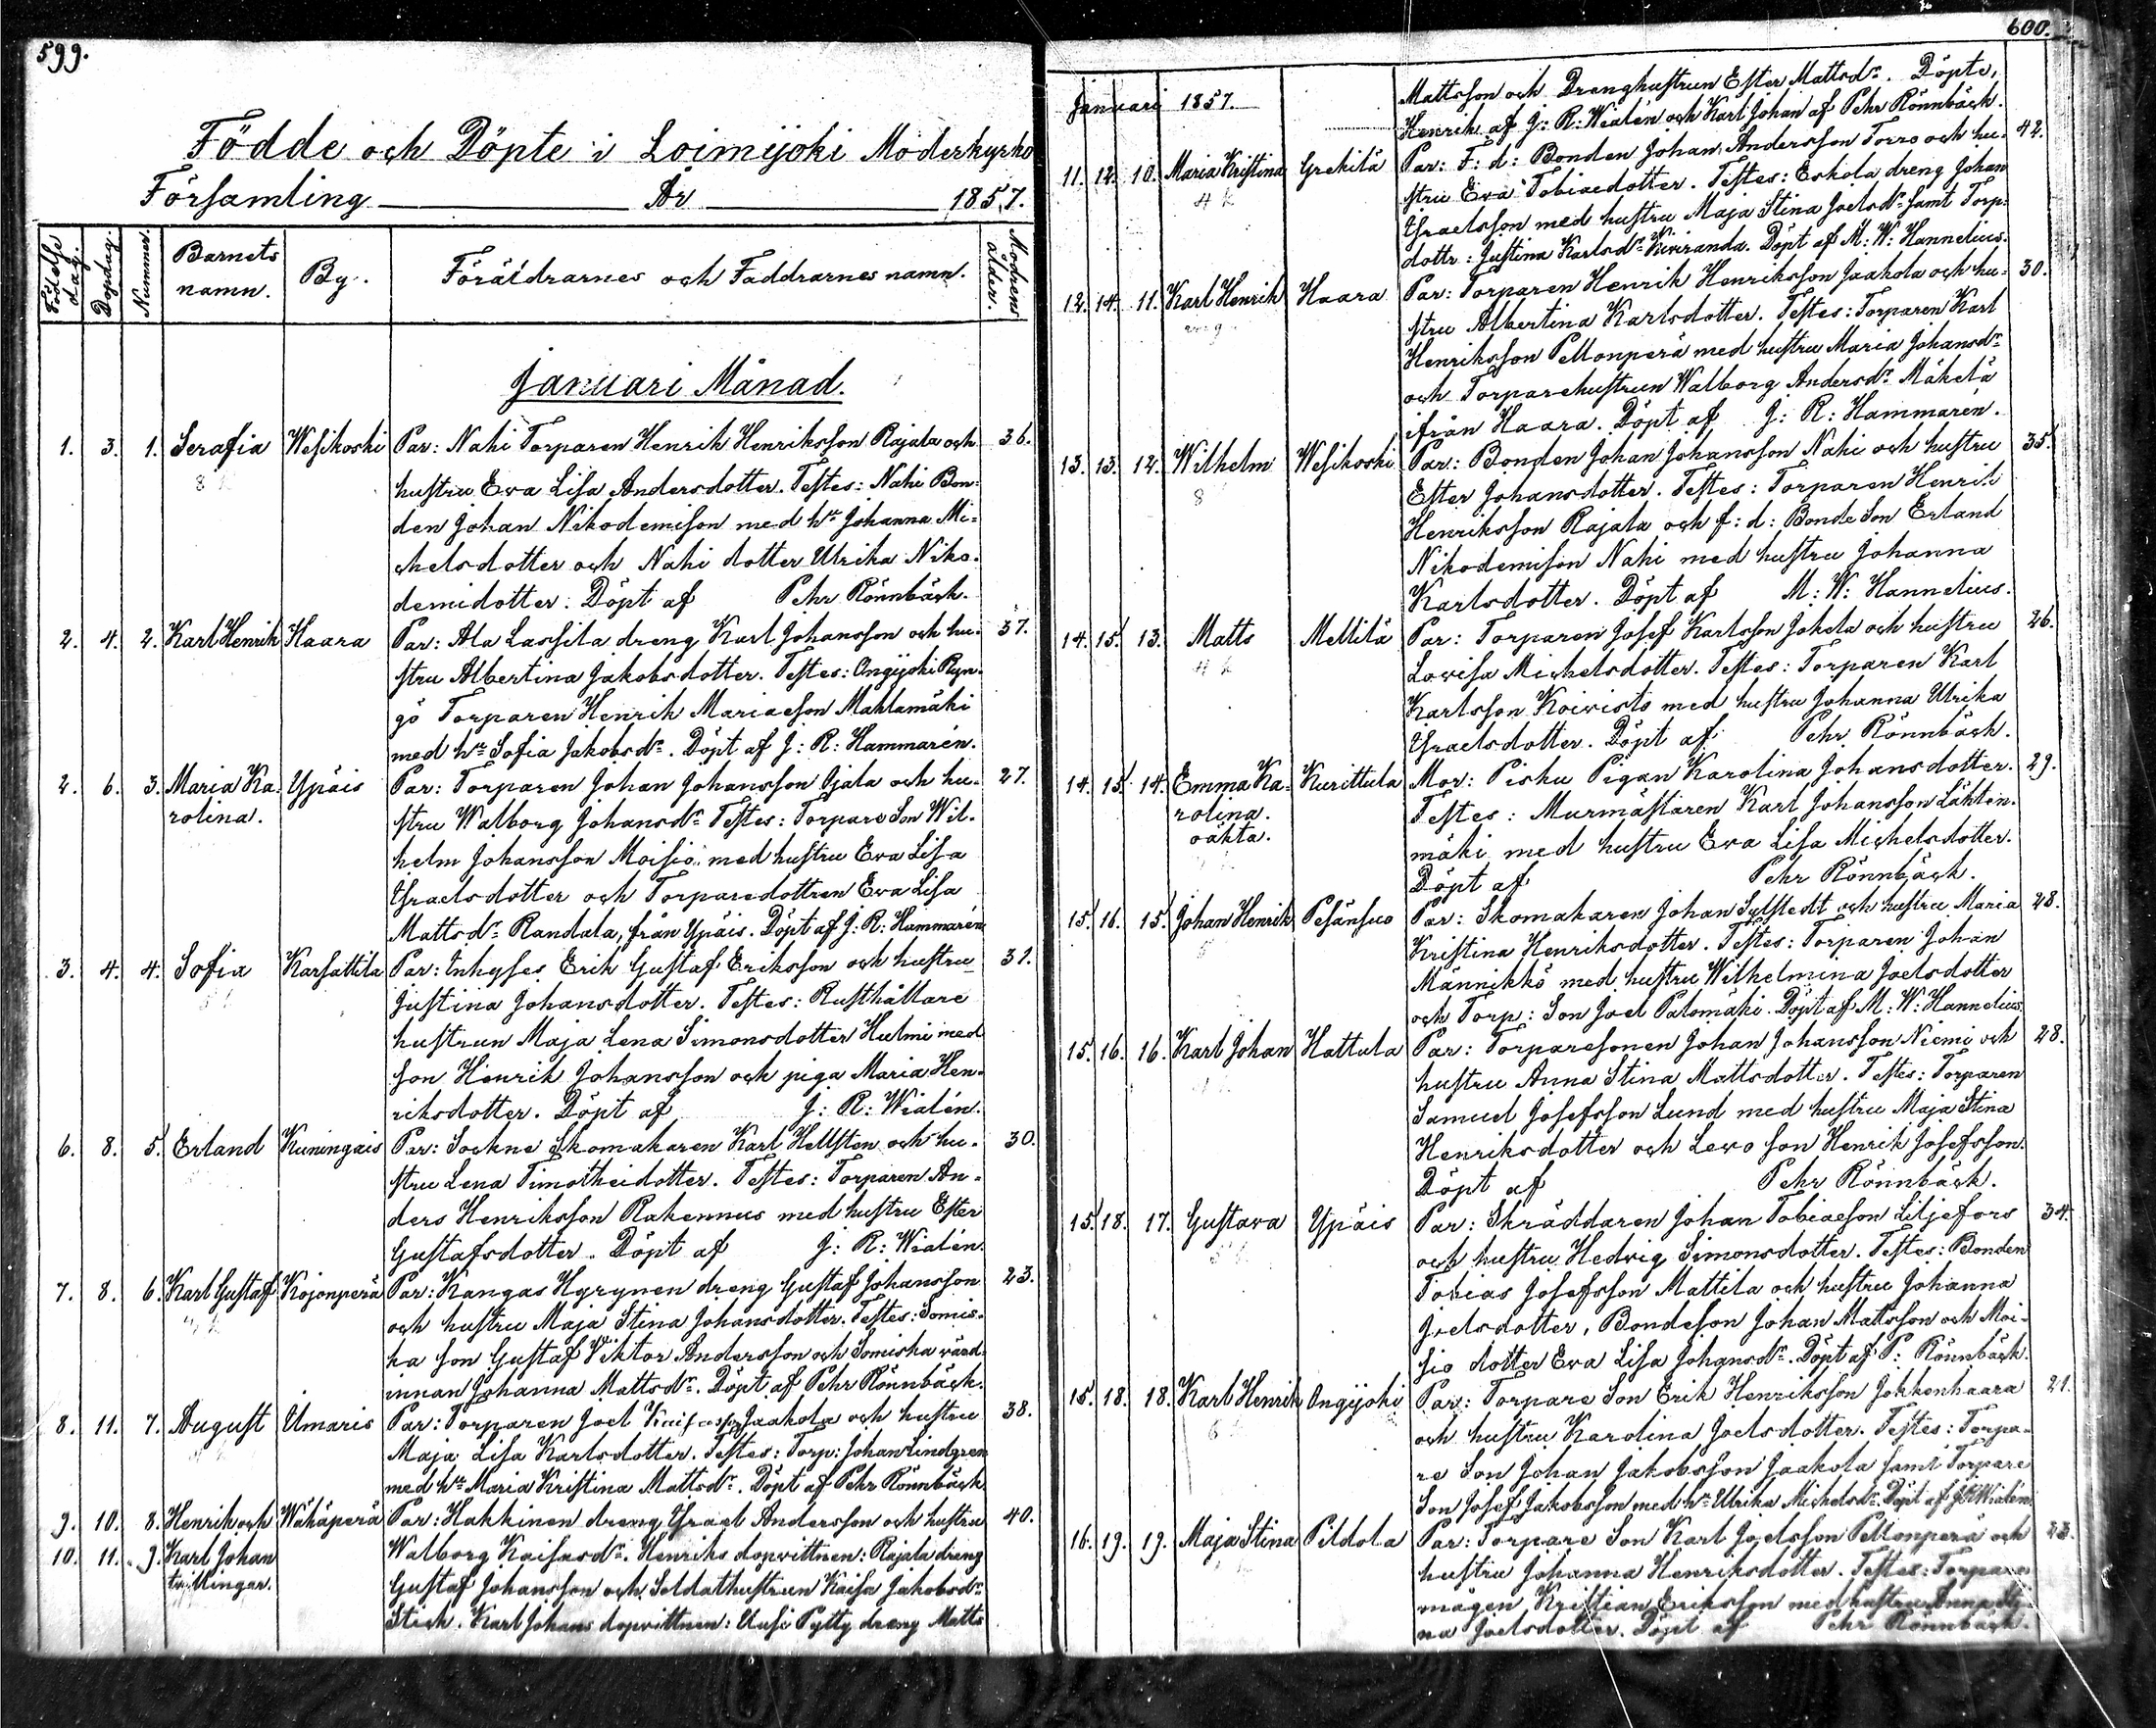 599.
Födde och Döpte i Loimijoki Moderkyrko
Församling År 1857.
Födelse dag. Dopdag. Nummer. Barnets namn. By. Föräldrarnes och Faddrarnes namn. Modrens ålder.
Januari Månad.
1. 3. 1. Serafia Wesikoski Par: Nahi Torparen Henrik Henriksson Rajala och 36.
hustru Eva Lisa Andersdotter. Testes: Nahi Bon-
den Johan Nikodemison med hr Johanna Mi-
chelsdotter och Nahi dotter Ulrika Niko-
demidotter. Döpt af Pehr Rönnbäck.
2. 4. 2. Karl Henrik Haara Par: Ala Lassila dreng Karl Johansson och hu- 37.
stru Albertina Jakobsdotter. Testes: Ongijoki Ryn-
gö Torparen Henrik Mariaeson Mahlamäki
med hr Sofia Jakobsdr. Döpt af J: R: Hammarén.
2. 6. 3. Maria Ka- Ypäis Par: Torparen Johan Johansson Ojala och hu- 27.
rolina. stru Walborg Johansdr Testes: Torpare Son Wil-
helm Johansson Moisio med hustru Eva Lisa
Israelsdotter och Torparedottren Eva Lisa
Mattsdr Randala, från Ypäis. Döpt af J: R: Hammarén
3. 4. 4. Sofia Karsattila Par: Inhyses Erik Gustaf Eriksson och hustru 31.
Justina Johansdotter. Testes: Rusthållare
hustrun Maja Lena Simonsdotter Hulmi med
son Henrik Johansson och piga Maria Hen-
riksdotter. Döpt af J: R: Wialén.
6. 8. 5. Erland Kuningais Par: Sockne Skomakaren Karl Hellsten och hu- 30.
stru Lena Timotheidotter. Testes: Torparen An-
ders Henriksson Rakennus med hustru Ester
Gustafsdotter. Döpt af J: R: Wialén.
7. 8. 6. Karl Gustaf Kojonperä Par: Kangas Hyrynen dreng Gustaf Johansson 23.
och hustru Maja Stina Johansdotter. Testes: Somis-
ka son Gustaf Viktor Andersson och Somiska värd-
innan Johanna Mattsdr. Döpt af Pehr Rönnbäck.
8. 11. 7. August Umaris Par: Torparen Joel Jaakola och hustru 38.
Maja Lisa Karlsdotter. Testes: Torp: Johan Lindgren
med hr Maria Kristina Mattsdr. Döpt af Pehr Rönnbäck
9. 10. 8. Henrik och Wähäperä Par: Hakkinen dreng Israel Andersson och hustru 40.
10. 11. 9. Karl Johan Walborg Kaisasdr. Henriks dopvittnen: Rajala dreng
tvillingar. Gustaf Johansson och Soldathustrun Kaisa Jakobsdr
Stick. Karl Johans dopvittnen: Uusi Pytty dreng Matts
600.
Januari 1857. Mattsson och Drenghustrun Ester Mattsdr. Döpte,
Henrik af J: R: Wialén och Karl Johan af Pehr Rönnbäck.
11. 12. 10. Maria Kristina Grekilä Par: F: d: Bonden Johan Andersson Torro och hu- 42.
stru Eva Tobiaedotter. Testes: Eskola dreng Johan
Israelsson med hustru Maja Stina Joelsdr samt Torp-
dottr: Justina Karlsdr Kiviranda. Döpt af M: W: Hannelius.
12. 14. 11. Karl Henrik Haara Par: Torparen Henrik Henriksson Jaakola och hu- 30.
stru Albertina Karlsdotter. Testes: Torparen Karl
Henriksson Peltonperä med hustru Maria Johansdr
och Torparehustrun Walborg Andersdr Mäkelä
ifrån Haara. Döpt af J: R: Hammarén.
13. 13. 12. Wilhelm Wesikoski Par: Bonden Johan Johansson Nahi och hustru 35.
Ester Johansdotter. Testes: Torparen Henrik
Henriksson Rajala och f: d: Bonde Son Erland
Nikodemison Nahi med hustru Johanna
Karlsdotter. Döpt af M: W: Hannelius.
14. 15. 13. Matts Mellilä Par: Torparen Josef Karlsson Jokela och hustru 26.
Lovisa Michelsdotter. Testes: Torparen Karl
Karlsson Koivisto med hustru Johanna Ulrika
Israelsdotter. Döpt af Pehr Rönnbäck.
14. 15. 14. Emma Ka- Kurittula Mor: Pisku Pigan Karolina Johansdotter. 29.
rolina. Testes: Murmästaren Karl Johansson Lähtön-
oäkta. mäki med hustru Eva Lisa Michelsdotter.
Döpt af Pehr Rönnbäck.
15. 16. 15. Johan Henrik Pesänsuo Par: Skomakaren Johan Sylstedt och hustru Maria 28.
Kristina Henriksdotter. Testes: Torparen Johan
Männikkö med hustru Wilhelmina Joelsdotter
och Torp: Son Joel Palomäki. Döpt af M: W: Hannelius.
15. 16. 16. Karl Johan Hattula Par: Torparesonen Johan Johansson Niemi och 28.
hustru Anna Stina Mattsdotter. Testes: Torparen
Samuel Josefsson Lund med hustru Maja Stina
Henriksdotter och Levo son Henrik Josefsson.
Döpt af Pehr Rönnbäck.
15. 18. 17. Gustava Ypäis Par: Skräddaren Johan Tobiaeson Liljefors 34.
och hustru Hedvig Simonsdotter. Testes: Bonden
Tobias Josefsson Mattila och hustru Johanna
Joelsdotter, Bondeson Johan Mattsson och Moi-
sio dotter Eva Lisa Johansdr. Döpt af P: Rönnbäck.
15. 18. 18. Karl Henrik Ongijoki Par: Torpare Son Erik Henriksson Jokkenhaara 21.
och hustru Karolina Joelsdotter. Testes: Torpa-
re Son Johan Jakobsson Jaakola samt Torpare
Son Josef Jakobsson med hr Ulrika Michelsdr. Döpt af J: R: Wialén.
16. 19. 19. Maja Stina Pildola Par: Torpare Son Karl Joelsson Peltonperä och 23.
hustru Johanna Henriksdotter. Testes: Torpare
mågen Kristian Eriksson med hustru Anna Sti-
na Joelsdotter. Döpt af Pehr Rönnbäck.